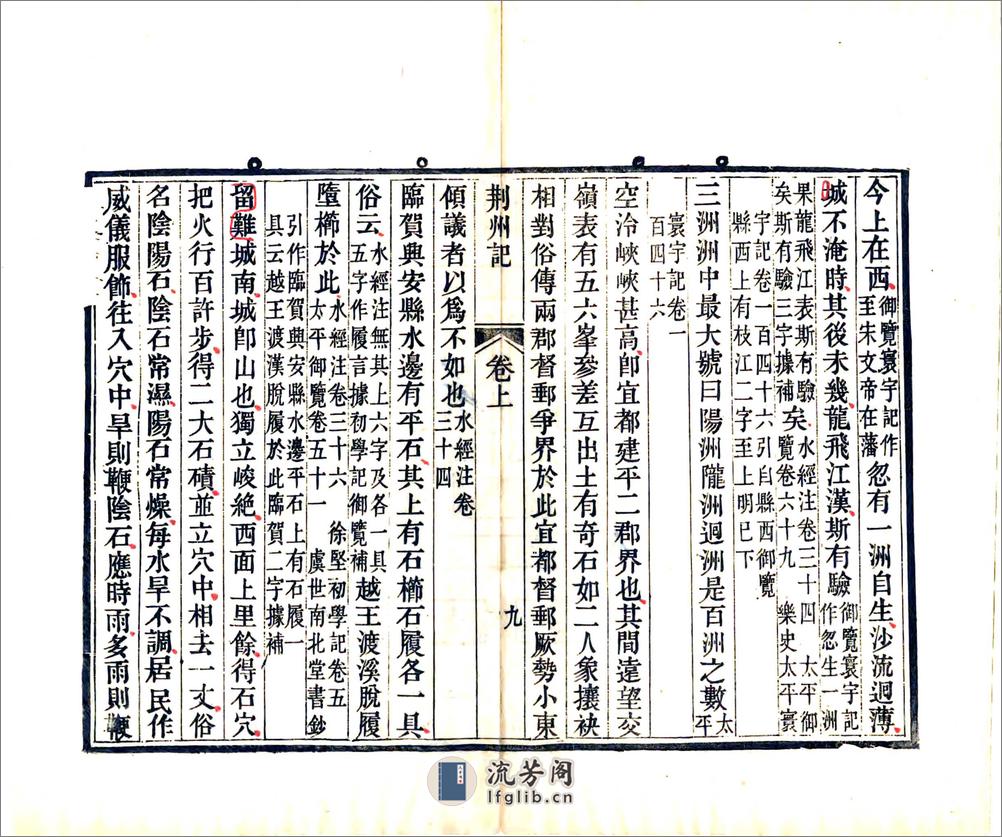 今上在西御覽寰宇記作至宋文帝在藩忽有一洲自生沙流迴薄
城不淹時其後未幾龍飛江漢斯有驗御覽寰宇記作忽生一洲
果龍飛江表斯有驗矣斯有驗三字據補矣水經注卷三十四 太平御覽卷六十九 樂史太平寰
宇記卷一百四十六引自縣西御覽縣西上有枝江二字至上明已下
三洲洲中最大號曰陽洲隴洲迴洲是百洲之數太平
寰宇記卷一百四十六
空泠峽峽甚高卽宜都建平二郡界也其間遠望交
嶺表有五六峯參差互出土有奇石如二人象攘袂
相對俗傳兩郡督郵爭界於此宜都督郵厥勢小東
荆州記 卷上 九
傾議者以爲不如也水經注卷三十四
臨賀興安縣水邊有平石其上有石櫛石履各一具
俗云水經注無其上六字及各一具五字作履言據初學記御覽補越王渡溪脫履
墮櫛於此水經注卷三十六 徐堅初學記卷五太平御覽卷五十一 虞世南北堂書鈔
引作臨賀興安縣水邊平石上有石履一具云越王渡漢脫履於此臨賀二字據補
留難城南城卽山也獨立峻絶西面上里餘得石穴
把火行百許步得二大石磧並立穴中相去一丈俗
名陰陽石陰石常濕陽石常燥每水旱不調居民作
威儀服飾往入穴中旱則鞭陰石應時雨多雨則鞭
流芳阁
lfglib.cn